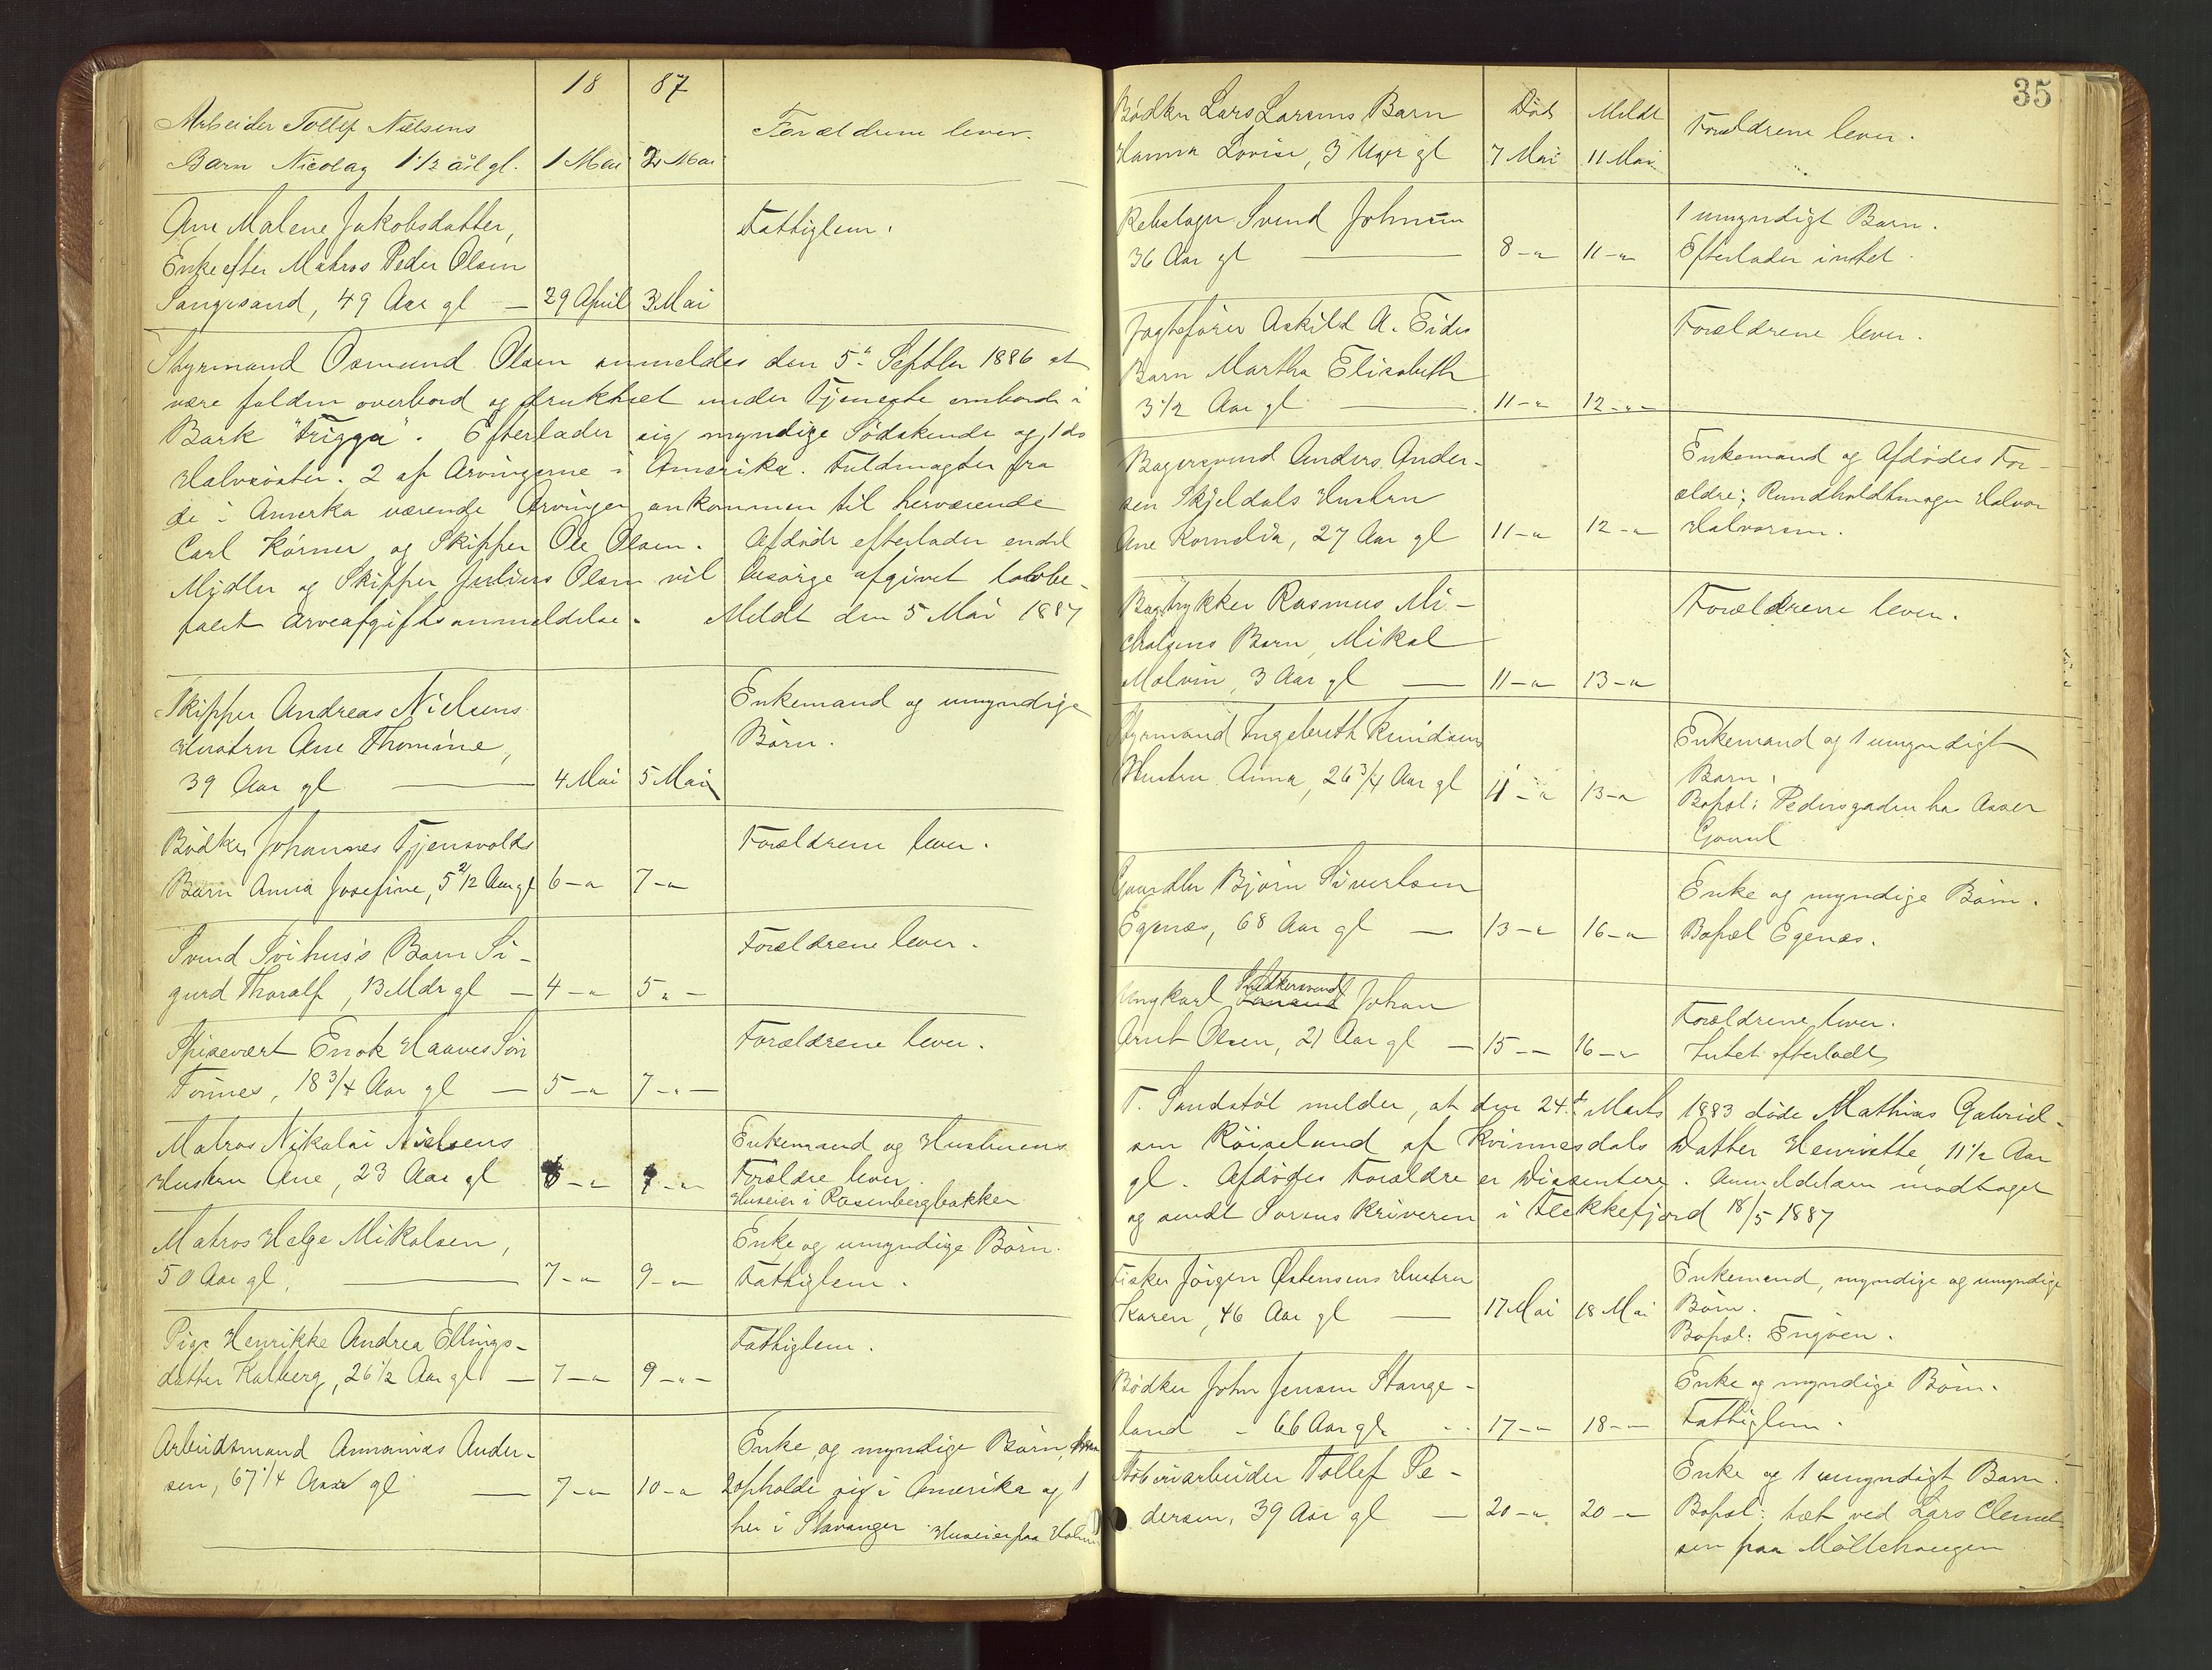 18 87
Arbeider Tollef Nielsens
Barn Nicolay 1 1/2 år gl. 1 Mai 2 Mai Forældrene lever.
Ane Malene Jakobsdatter,
Enke efter Matros Peder Olsen
Sangesand, 49 Aar gl — 29 April 3 Mai Fattiglem.
Styrmand Osmund Olsen anmeldes den 5te Septbr 1886 at
være falden overbord og druknet under Tjeneste ombord i
Bark "Frigga". Efterlader sig myndige Södskende og 1 do
Halvsöster. 2 af Arvingerne i Amerika. Fuldmagter fra
de i Amerka værende Arvinger ankommen til herværende
Carl Körner og Skipper Ole Olsen. Afdöde efterlader endel
Midler og Skipper Julius Olsen vil besørge afgivet lovbe-
falet Arveafgiftsanmeldelse. Meldt den 5 Mai 1887
Skipper Andreas Nielsens
Hustru Ane Thomine,
39 Aar gl — 4 Mai 5 Mai Enkemand og umyndige
Börn.
Bödker Johannes Tjensvolds
Barn Anna Josefine, 5 1/2 Aar gl 6 -"- 7 -"- Forældrene lever.
Svend Svihus's Barn Si-
gurd Thoralf, 13 Mdr gl — 4 -"- 5 -"- Forældrene lever.
Spisevært Enok Haaves Sön
Tönnes, 18 3/4 Aar gl — 5 -"- 7 -"- Forældrene lever.
Matros Nikolai Nielsens
Hustru Ane, 23 Aar gl -"- -"- Enkemand og Hustruens
Forældre lever.
Huseier i Rosenbergbakken
Matros Helge Mikalsen,
50 Aar gl. — 7 -"- 9 -"- Enke og umyndige Börn.
Fattiglem.
Pige Henrikke Andrea Ellings-
datter Kalberg, 26 1/2 Aar gl — 7 -"- 9 -"- Fattiglem.
Arbeidsmand Annanias Ander-
sen, 67 1/4 Aar gl — 7 -"- 10 -"- Enke og myndige Börn, hvoraf
2 opholde sig i Amerika og 1
her i Stavanger Huseier paa
35
Död Meldt
Bödker Lars Larsens Barn
Hanna Lovise, 3 Uger gl 7 Mai 11 Mai Forældrene lever.
Rebslager Svend Johnsen
36 Aar gl — 8 -"- 11 -"- 1 umyndigt Barn.
Efterlader intet.
Jagtefører Askild A. Eides
Barn Martha Elisabeth
3 1/2 Aar gl — 11 -"- 12 -"- Forældrene lever.
Bagersvend Anders Ander-
sen Skjeldals Hustru
Ane Kornelia, 27 Aar gl 11 -"- 12 -"- Enkemand og Afdödes For-
ældre: Rundholdtmager Halvor
Halvorsen.
Bogtrykker Rasmus Mi-
chalsens Barn, Mikal
Malvin, 3 Aar gl — 11 -"- 13 -"- Forældrene lever.
Styrmand Ingebreth Knudsens
Hustru Anna, 26 3/4 Aar gl 11 -"- 13 -"- Enkemand og 1 umyndigt
Barn.
Bopæl: Pedersgaden hos Asser
Gaardbr Björn Sivertsen
Egenæs, 68 Aar gl — 13 -"- 16 -"- Enke og myndige Börn.
Bopæl Egenæs.
Ungkarl Johan
Arnt Olsen, 21 Aar gl — 15 -"- 16 -"- Forældrene lever.
Intet efterladt
T. Sandstöl melder, at den 24de Marts 1883 døde Mathias Gabriel-
sen Röiselund af Kvinnesdals Datter Henriette, 11 1/2 Aar
gl. Afdödes Forældre er Dissentere. Anmeldelsen modtaget
og sendt Sorenskriveren i Flekkefjord 18/5 1887
Fisker Jörgen Østensens Hustru
Karen, 46 Aar gl — 17 Mai 18 Mai Enkemand, myndige og umyndige
Börn.
Bopæl: Engöen.
Bödker John Jensen Stange-
land - 66 Aar gl 17 -"- 18 -"- Enke og myndige Börn.
Fattiglem.
Støberiarbeider Tollef Pe-
dersen, 39 Aar gl — 20 -"- 20 -"- Enke og 1 umyndigt Barn.
Bopæl: tæt ved Lars Clemet-
sen paa Möllehaugen